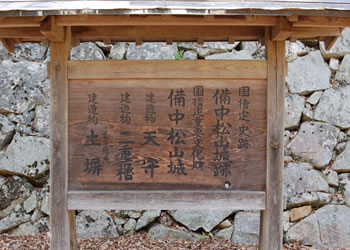 国指定史跡
備中松山城跡
国指定重要文化財
備中松山城
建造物 天守
建造物 二重櫓
建造物 土塀